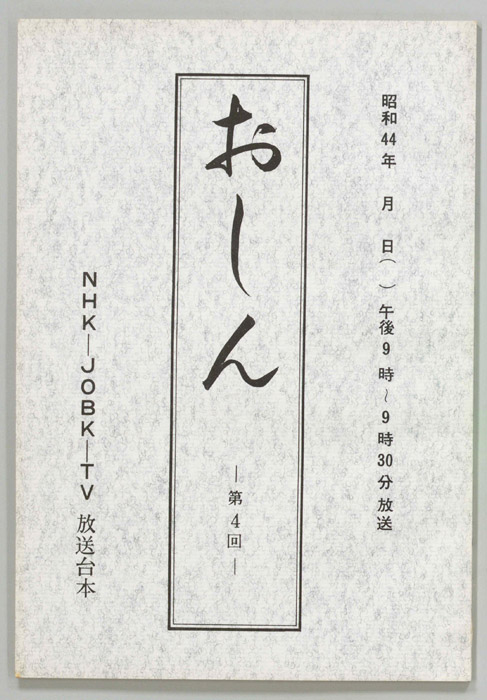 昭和44年　月　日(　)午後9時〜9時30分放送
おしん
―第4回―
NHK―JOBK―TV 放送台本